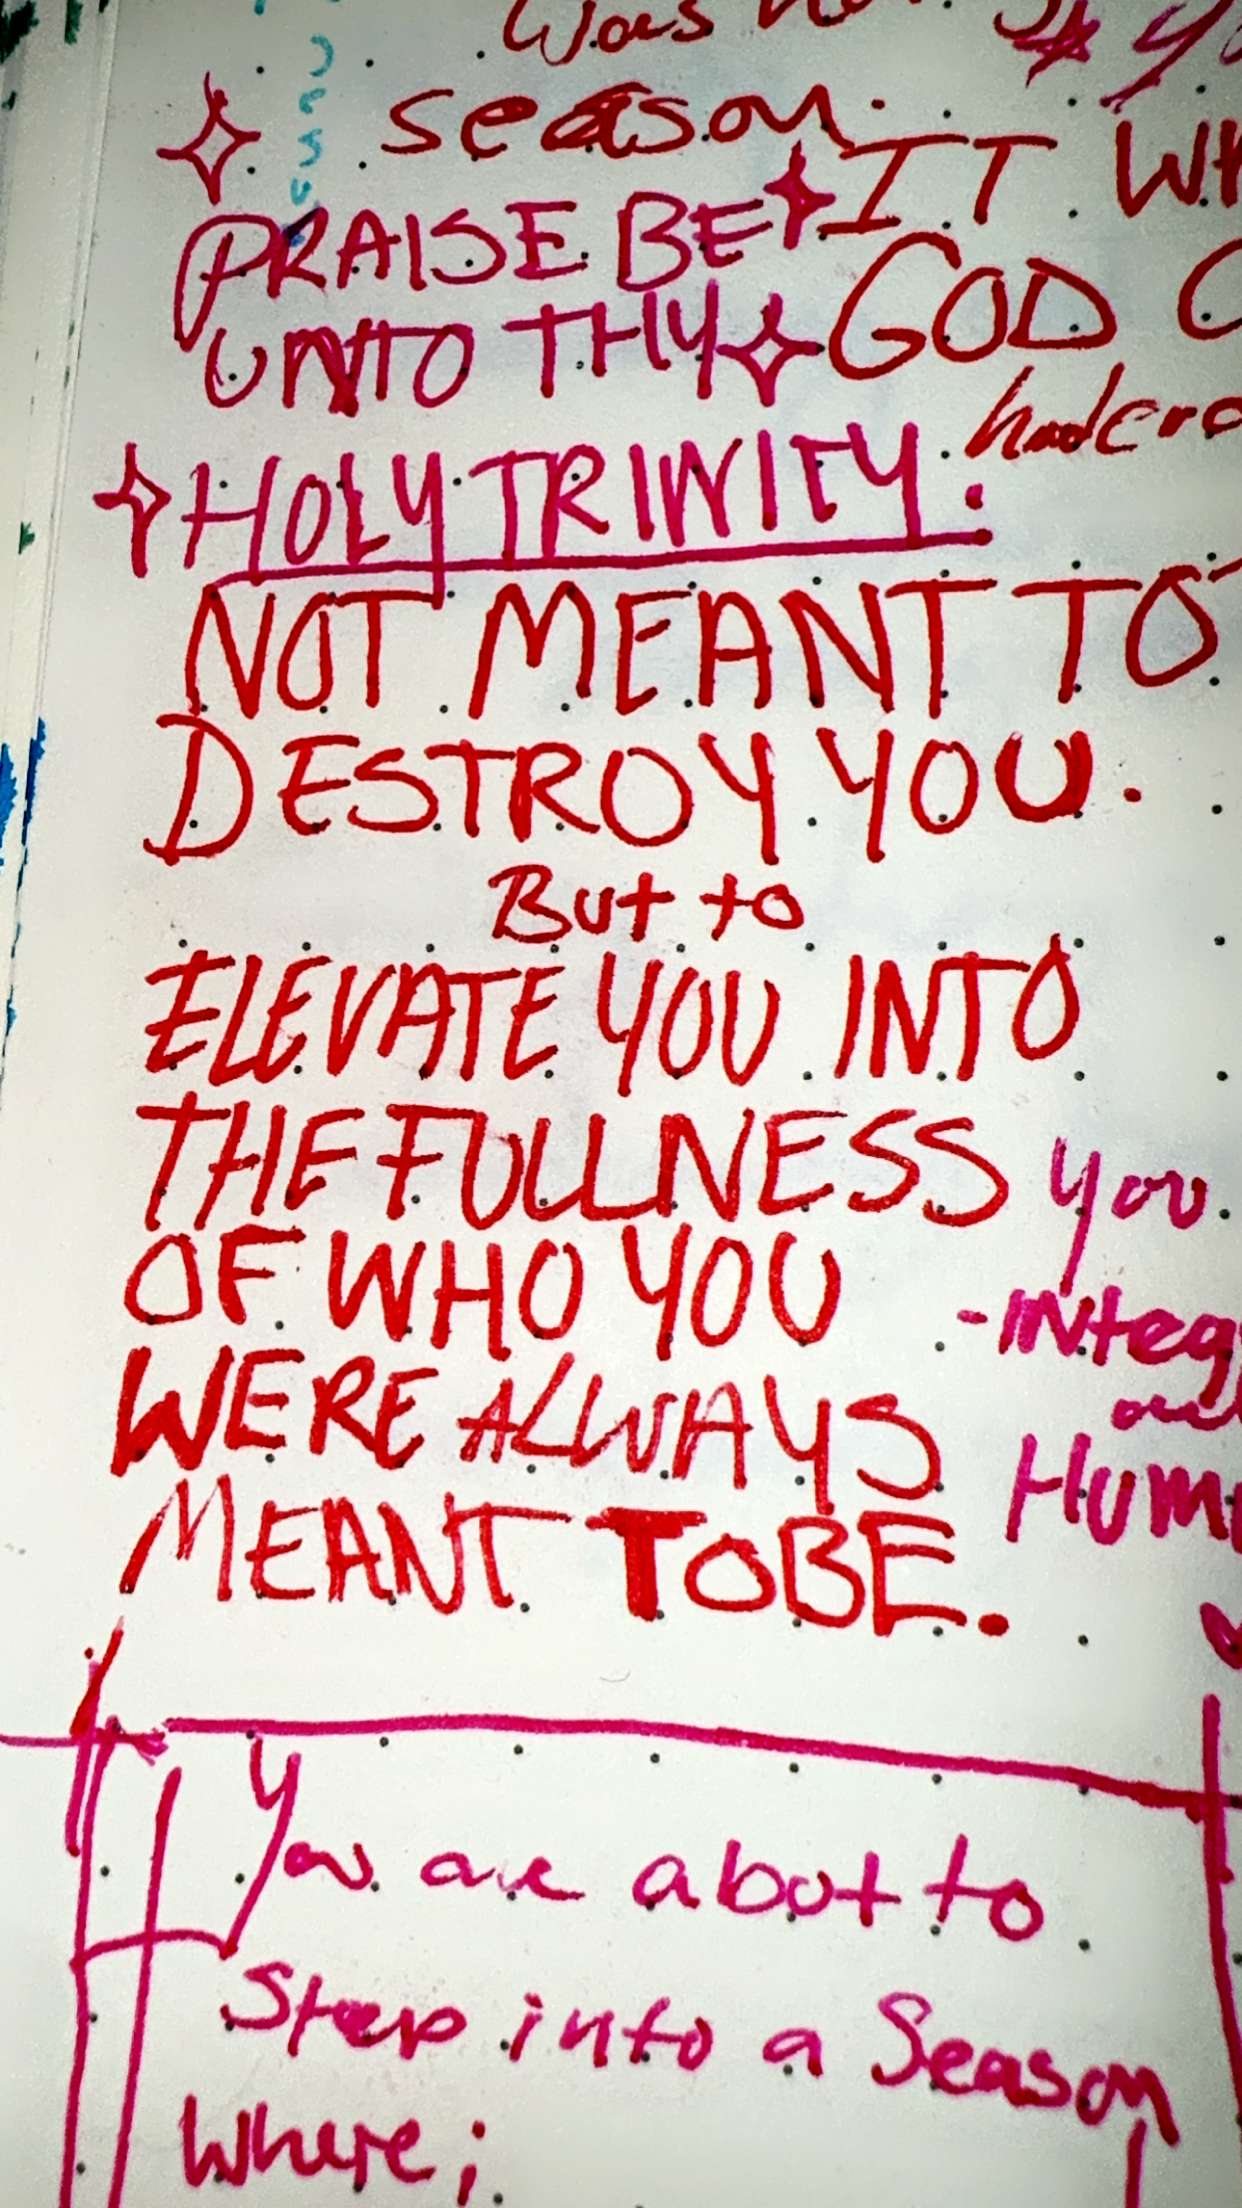 was
season.
IT
PRAISE BE
UNTO THY
GOD
HOLY TRINITY.
NOT MEANT TO
DESTROY YOU.
But to
ELEVATE YOU INTO
THE FULLNESS
you.
OF WHO YOU
WERE ALWAYS
MEANT TO BE.
You are about to
Step into a Season
Where;